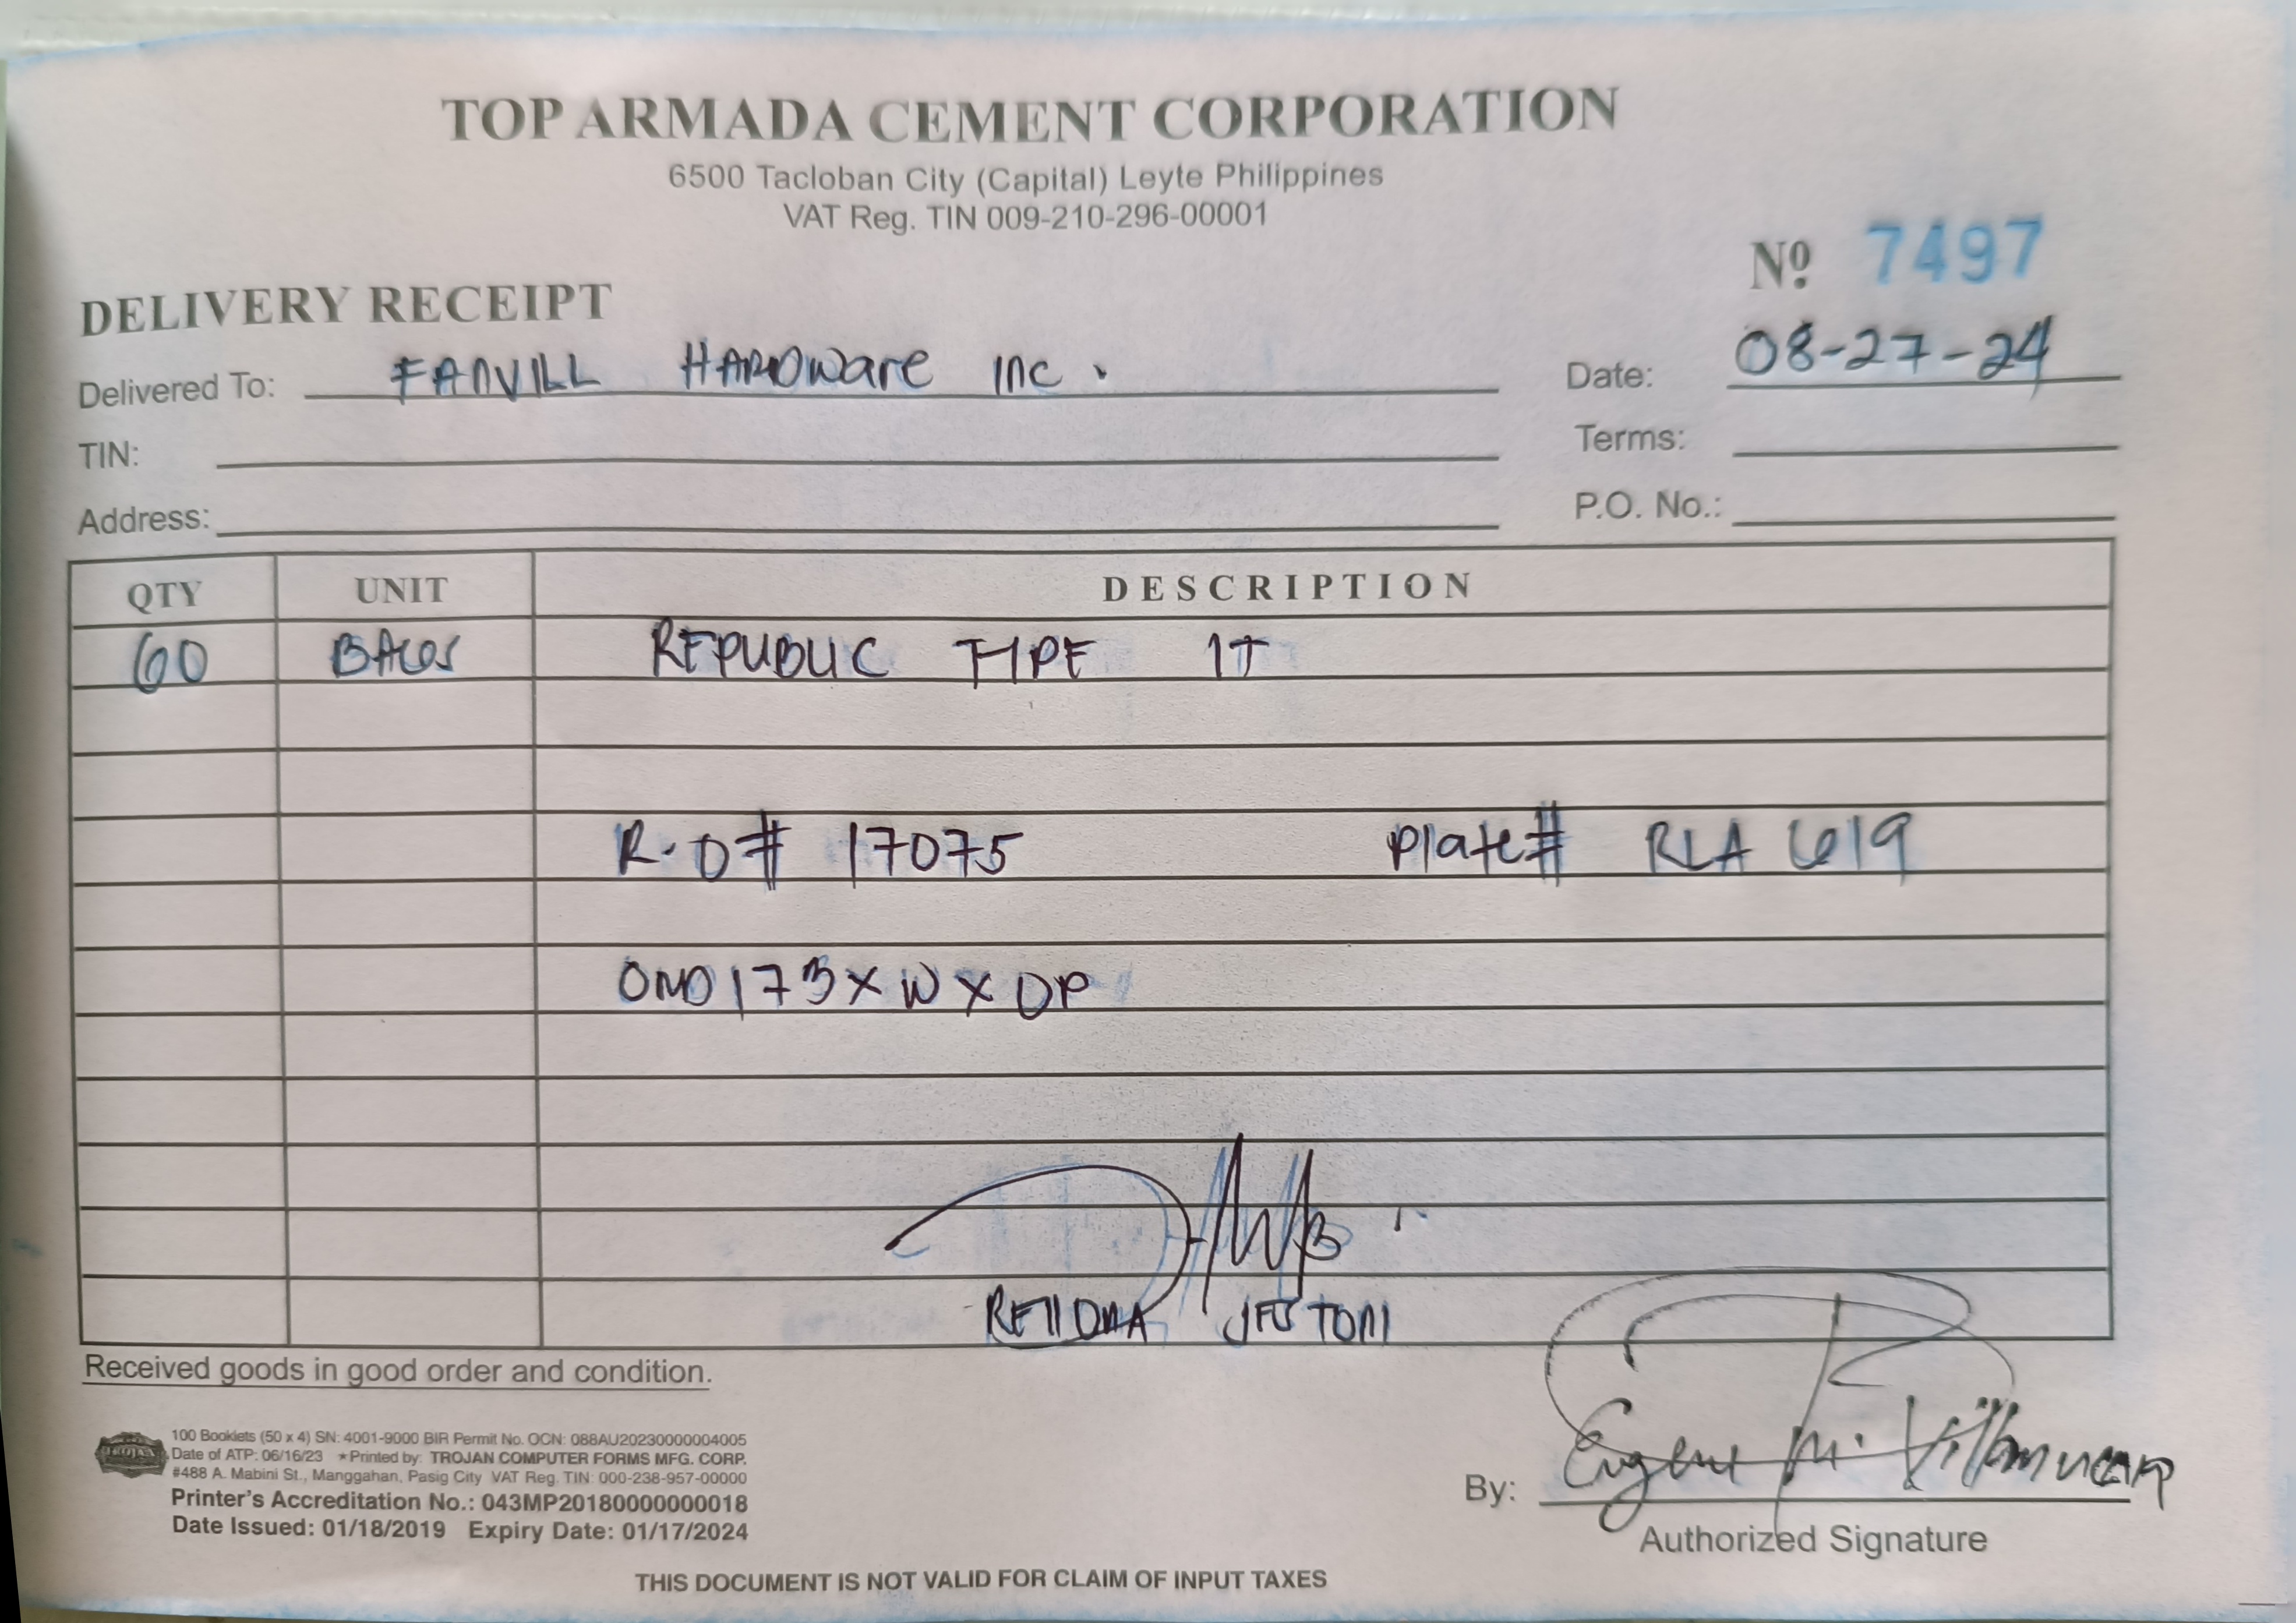 TOP ARMADA CEMENT CORPORATION
6500 Tacloban City (Capital) Leyte Philippines
VAT Reg. TIN 009-210-296-00001
Nº 7497
DELIVERY RECEIPT
Delivered To: FANVILL HARDware Inc.
Date: 08-27-24
TIN:
Terms:
Address:
P.O. No.:
QTY UNIT DESCRIPTION
60 BAGS REPUBLIC TYPE 1T
R.O# 17075 Plate# RLA 619
JETTONI
Received goods in good order and condition.
TROJAN
100 Booklets (50 x 4) SN: 4001-9000 BIR Permit No. OCN: 088AU20230000004005
Date of ATP: 06/16/23 ★Printed by: TROJAN COMPUTER FORMS MFG. CORP.
#488 A. Mabini St., Manggahan, Pasig City VAT Reg. TIN: 000-238-957-00000
Printer's Accreditation No.: 043MP20180000000018
Date Issued: 01/18/2019 Expiry Date: 01/17/2024
By: Eugene M. Villanueva
Authorized Signature
THIS DOCUMENT IS NOT VALID FOR CLAIM OF INPUT TAXES